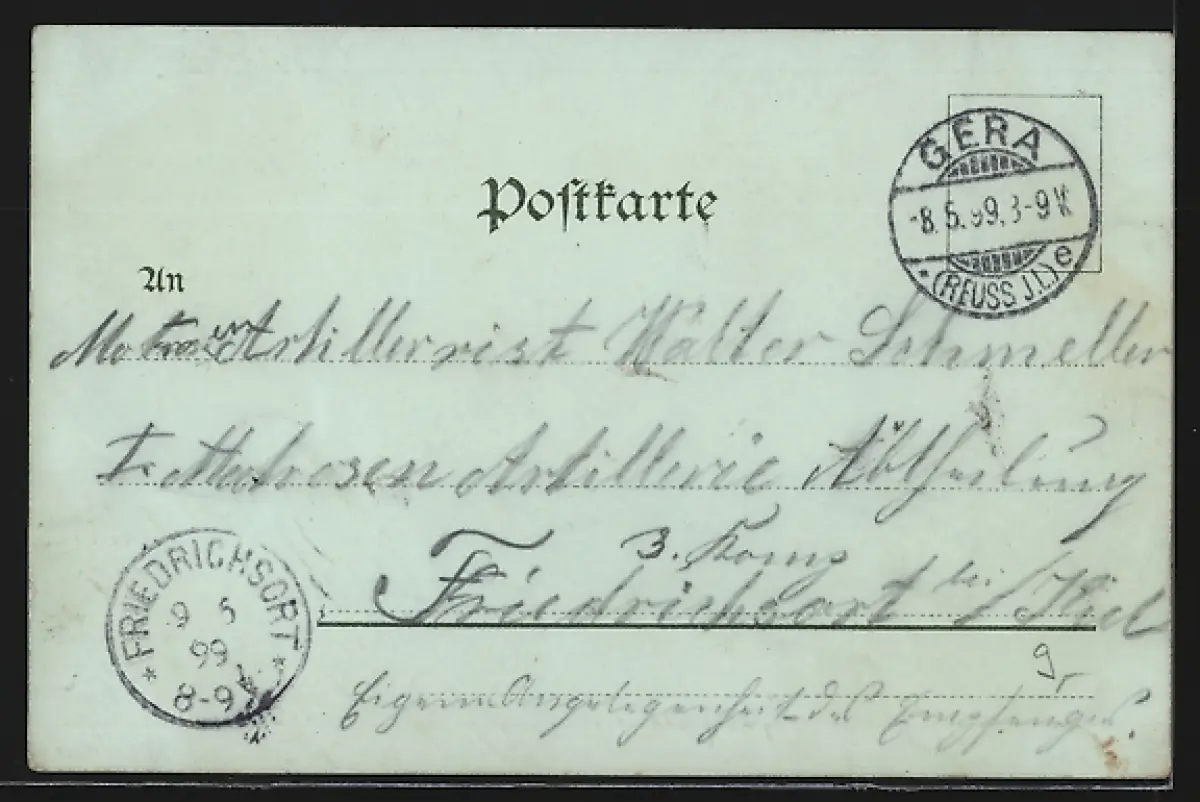 Postkarte
GERA
-8.5.99.8-9V.
* (REUSS J.L.) e
An
Matrosen Artillerist Walter Schmeller
I. Matrosen Artillerie Abtheilung
3. Komp
Friedrichsort bei Kiel
* FRIEDRICHSORT *
9 5
99
8-9
9
Eigene Angelegenheit des Empfängers.